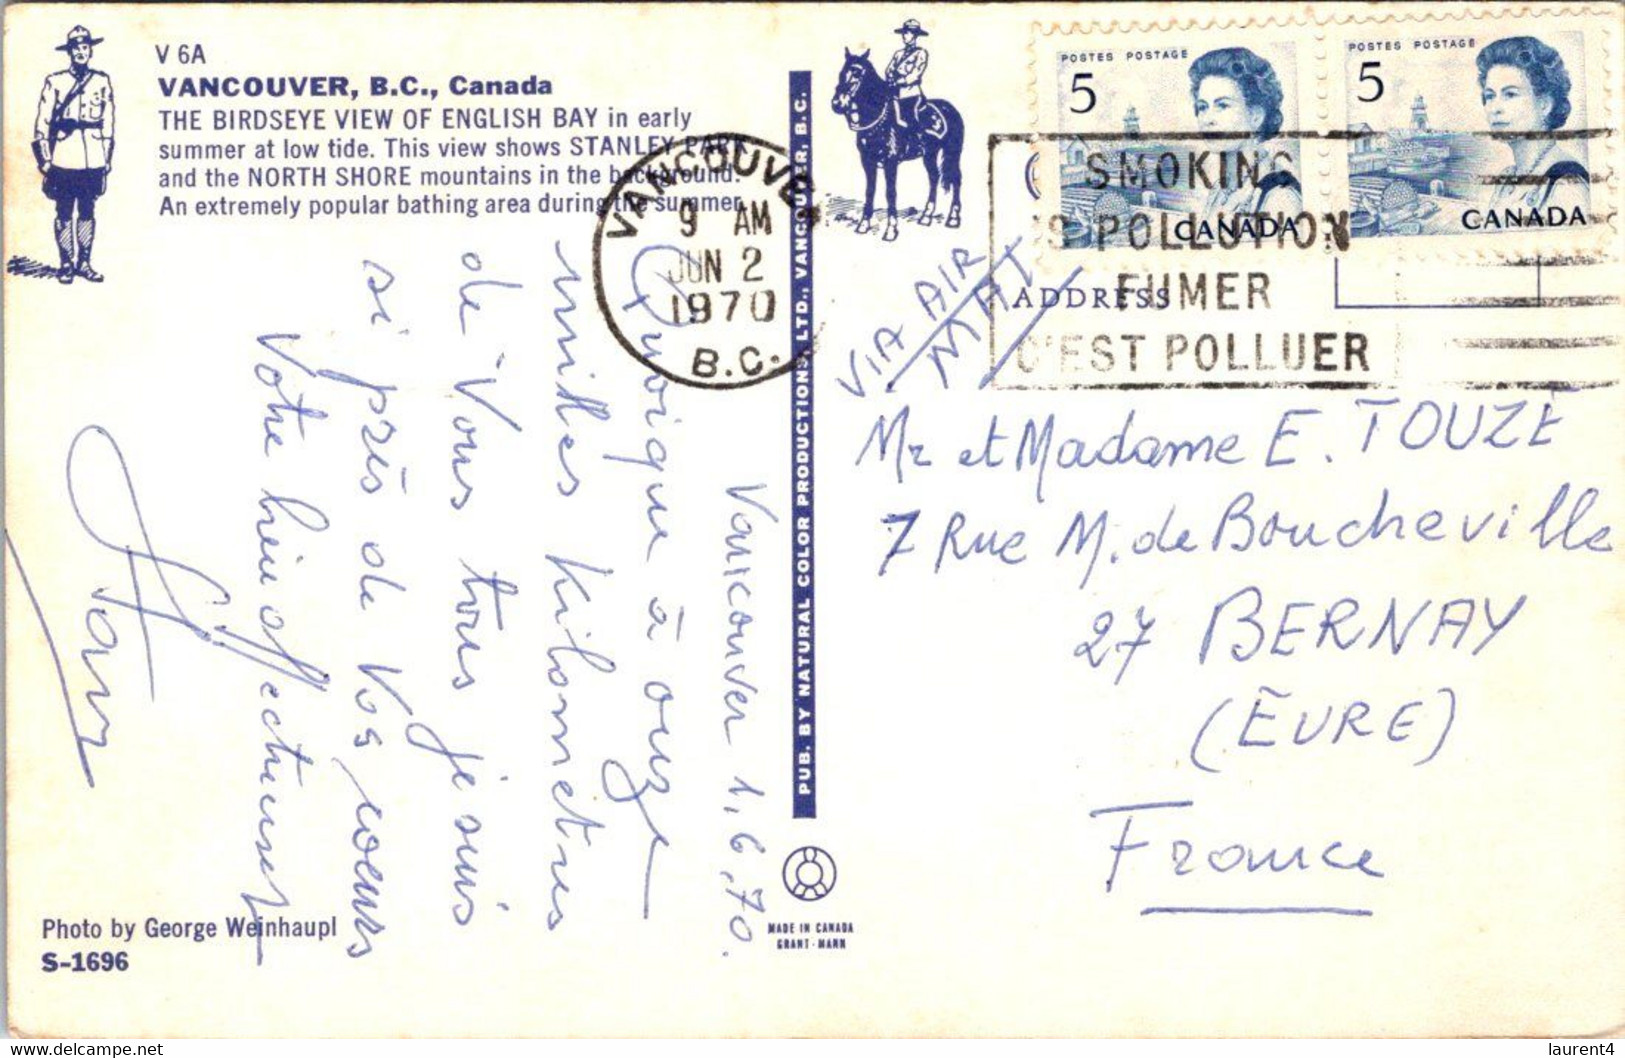 V 6A
VANCOUVER, B.C., Canada
THE BIRDSEYE VIEW OF ENGLISH BAY in early
summer at low tide. This view shows STANLEY PARK
and the NORTH SHORE mountains in the background.
An extremely popular bathing area during the summer.
Vancouver 1.6.70.
Quoique à onze
milles Kilomètres
de Vous tous je suis
si près de Vos coeurs
Votre bien affectueuse
Photo by George Weinhaupl
S-1696
PUB. BY NATURAL COLOR PRODUCTIONS, LTD., VANCOUVER, B.C.
MADE IN CANADA
GRANT-MANN
VANCOUVER
9 AM
JUN 2
1970
B.C.
POSTES POSTAGE
5
CANADA
POSTES POSTAGE
5
CANADA
SMOKING
IS POLLUTION
FUMER
C'EST POLLUER
ADDRESS
VIA AIR
MAIL
Mr et Madame E. TOUZÉ
7 Rue M. de Boucheville
27 BERNAY
(EURE)
France
laurent4